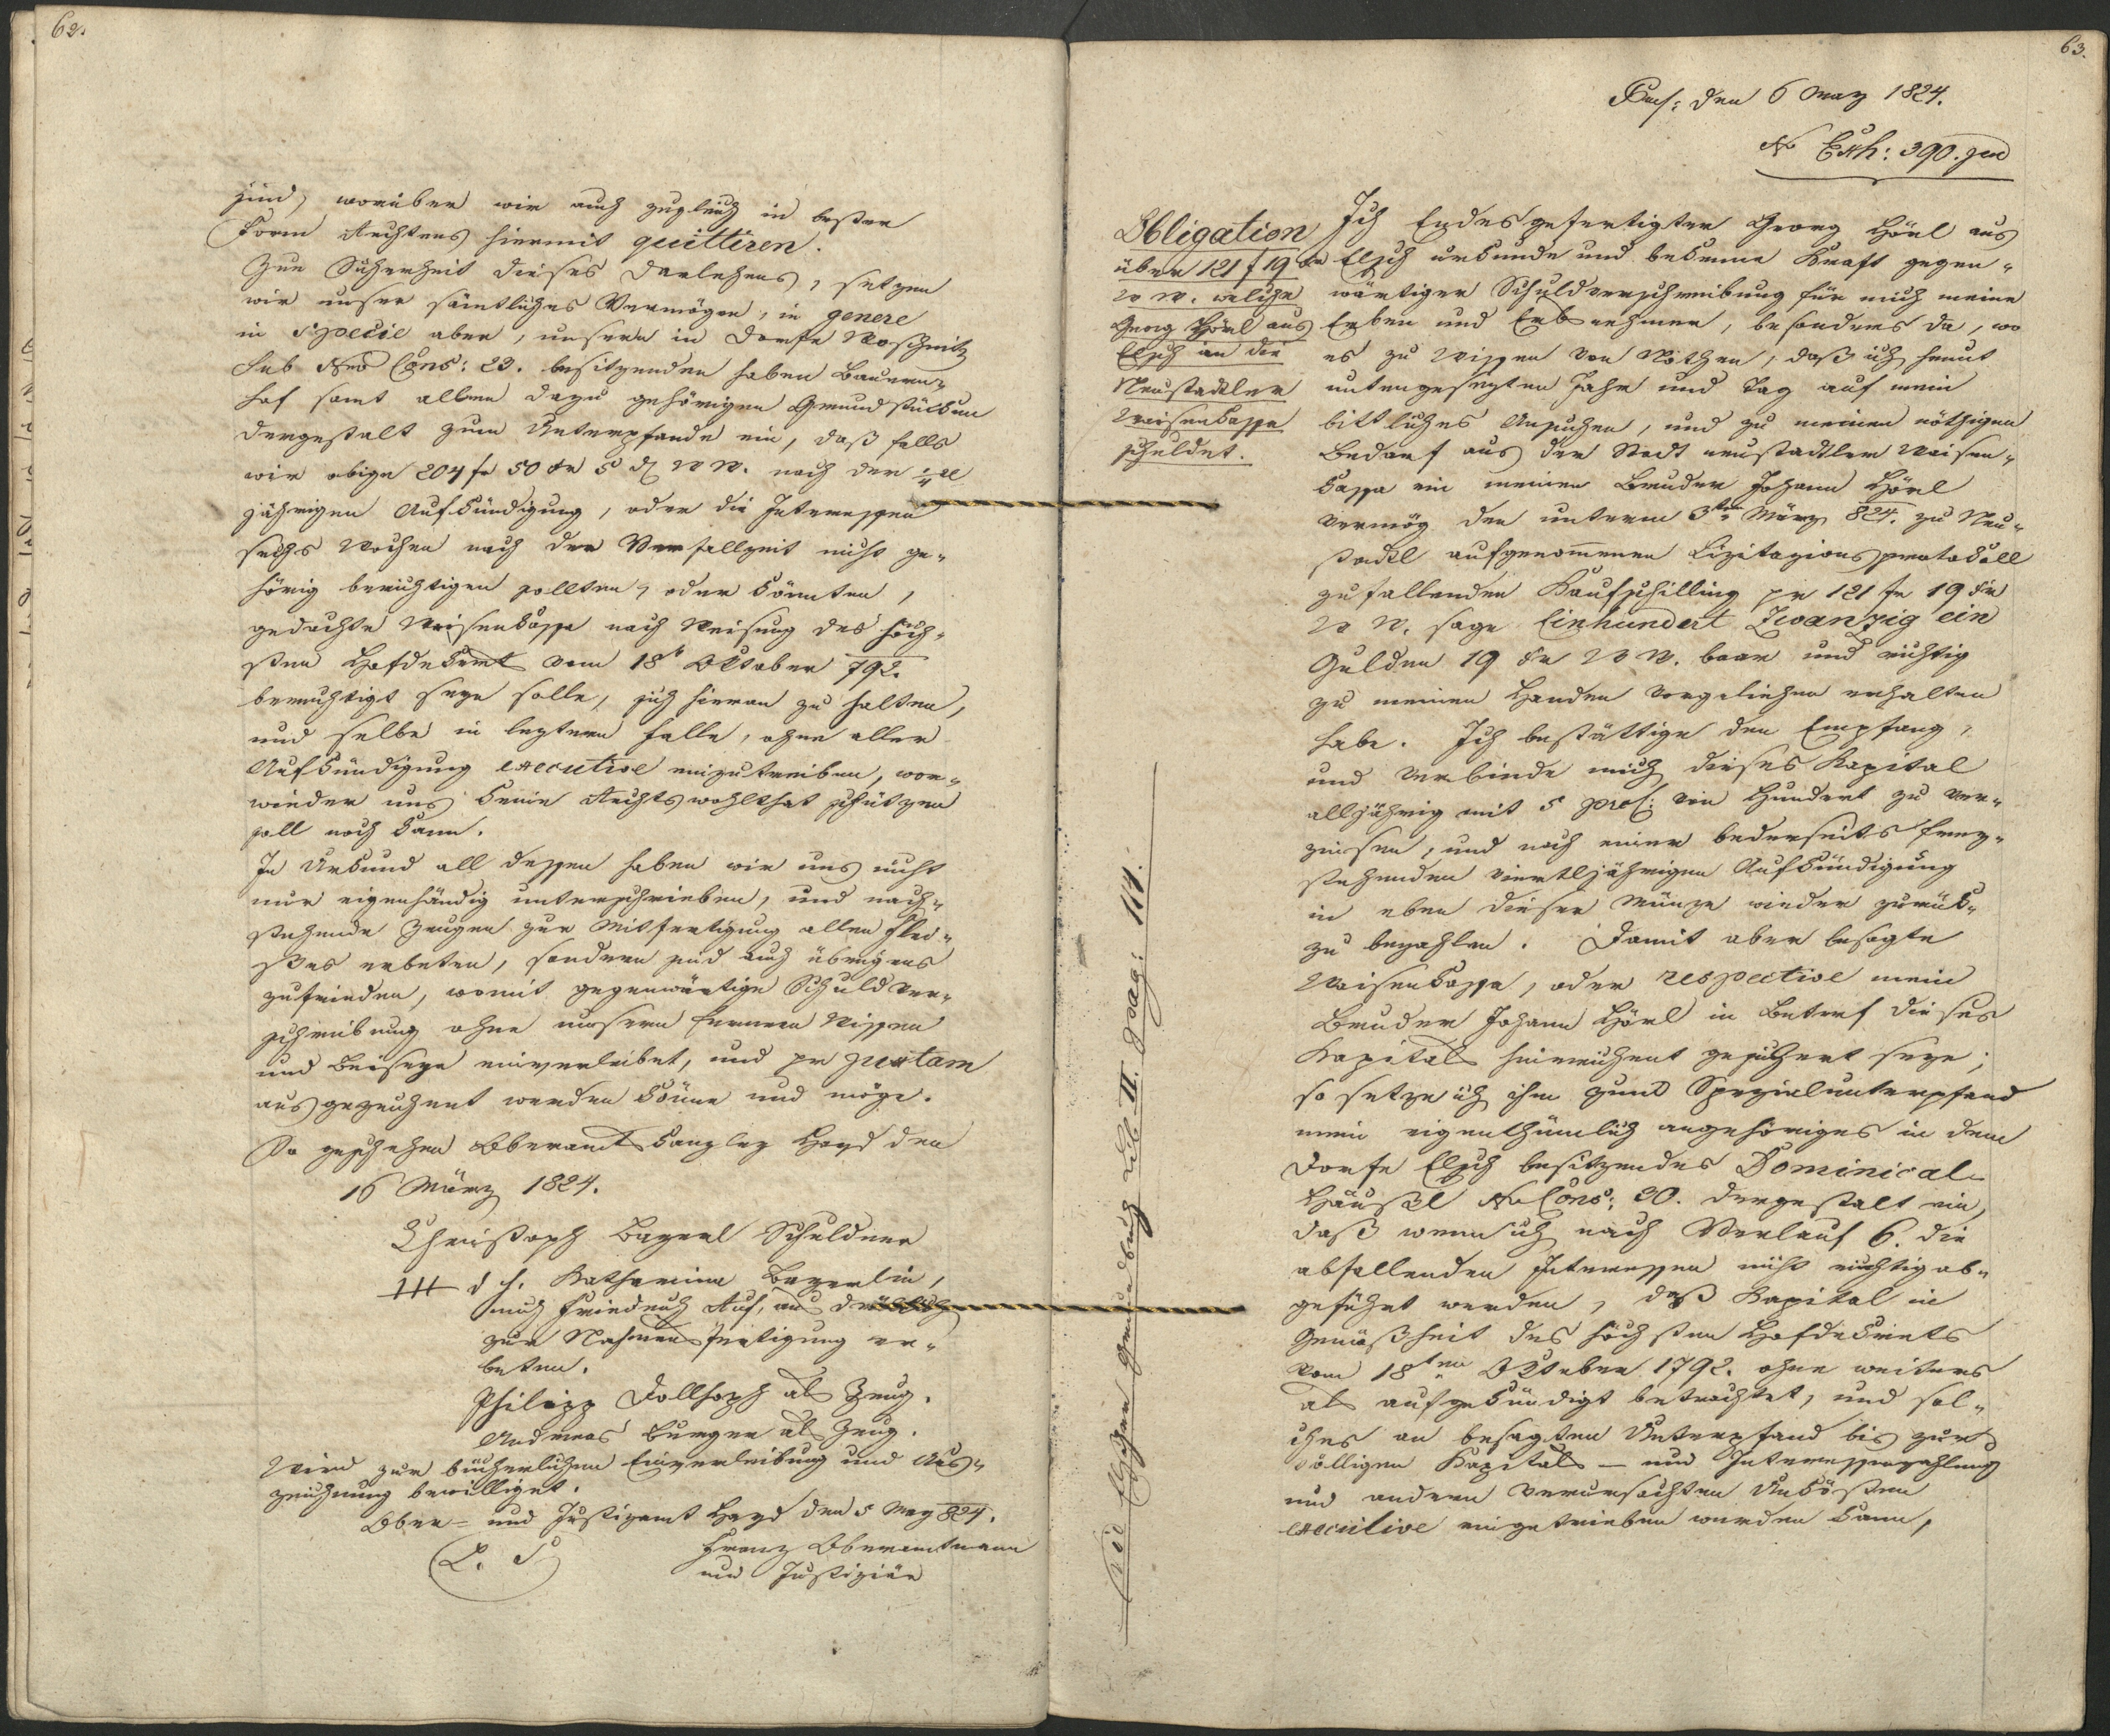 62.
sind, worüber wir auch zugleich in bester
Form Rechtens hiermit quittiren.
Zur Sicherheit dieses Darlehens, setzen
wir unser sämtliches Vermögen, in genere
in Specie aber, unsern in Dorfe Roschnitz
sub Nro Cons: 23. besitzenden halben Bauern-
hof samt allen dazu gehörigen Grundstücken
dergestalt zum Unterpfande ein, daß falls
wir obige 204 fr 50 kr 5 d WW. nach der
jährigen Aufkündigung, oder die Interessen
sechs Wochen nach der Verfallzeit nicht ge-
hörig berichtigen sollten, oder könnten,
gedachte Waisenkasse nach Weisung des höch-
sten Hofdekret vom 18t Oktober 792.
berechtigt seyn solle, sich hieran zu halten,
und selbe in leztern Falle, ohne aller
Aufkündigung executive einzutreiben, wor-
wieder uns keine Rechtswohlthat schützen
soll noch kann.
In Urkund all dessen haben wir uns nicht
nur eigenhändig unterschrieben, und nach-
stehende Zeugen zur Mitfertigung allen Flei-
ßes erbeten, sondern sind auch übrigens
zufrieden, womit gegenwärtige Schuldver-
schreibung ohne unsern fernern Wissen
und Beiseyn einverleibet, und pr justam
ausgezeichnet werden könne und möge.
So geschehen Oberamtskanzley Hayd den
16 März 1824.
Christoph Bayerl Schuldner
+++ d. h. Katharina Bayerlin,
mich Friedrich Auf, aus
zur Nahmensfertigung er-
beten.
Philipp Dollhopf als Zeug.
Andreas Burger als Zeug.
Wird zur bücherlichen Einverleibung und Aus-
zeichnung bewilliget.
Ober- und Justizamt Hayd den 5 May 824.
(L. S) Franz Oberamtmann
und Justiziär
63.
Pras: den 6 May 1824.
No Exh: 390. jud
Obligation
über 121 f 19 kr
WW. welche
Georg Hörl aus
Elsch an die
Neustadtler
Waisenkasse
schuldet.
Ich Endesgefertigter Georg Hörl aus
Elsch urkunde und bekenne Kraft gegen-
wärtiger Schuldverschreibung für mich meine
Erben und Erbnehmer, besonders da, wo
es zu wissen von Nöthen, daß ich heunt
untengesezten Jahr und Tag auf mein
bittliches Ansuchen, und zu meinen nöthigen
Bedarf aus der Stadt neustadtler Waisen-
kassa ein meinen Bruder Johann Hörl
vermög den unterm 3ten März 824. zu Neu-
stadtl aufgenommenen Lizitazionsprotokoll
zufallenden Kaufschilling pr 121 fr 19 kr
WW. sage Einhundert Zwanzig ein
Gulden 19 kr WW. baar und richtig
zu meinen Handen vorgeliehen erhalten
habe. Ich bestättige den Empfang,
und verbinde mich dieses Kapital
alljährig mit 5 procz: von Hundert zu ver-
zinsen, und nach einer bederseits frey-
stehenden viertljährigen Aufkündigung
in eben dieser Münze wieder zurück-
zu bezahlen. Damit aber besagte
Waisenkassa, oder respective mein
Bruder Johann Hörl in Betref dieses
Kapitals hinreichent gesichert seye;
so setze ich ihm zum Spezialunterpfand
mein eigenthümlich angehöriges in dem
Dorfe Elsch besitzendes Dominical-
Häusel No Cons: 30. dergestalt ein,
daß wenn ich nach Verlauf 6. die
abfallenden Interessen nicht richtig ab-
geführt werden, daß Kapital in
Gemäßheit des höchsten Hofdekrets
vom 18ten Oktober 1792. ohne weiters
als aufgekündigt betrachtet, und sol-
ches an besagten Unterpfand bis zur
völligen Kapitals – und Interessenzahlung
und andern verursachten Unkösten
executive eingetrieben werden kann,
Vid Elscher Grundbuch sub II. pag: 114.